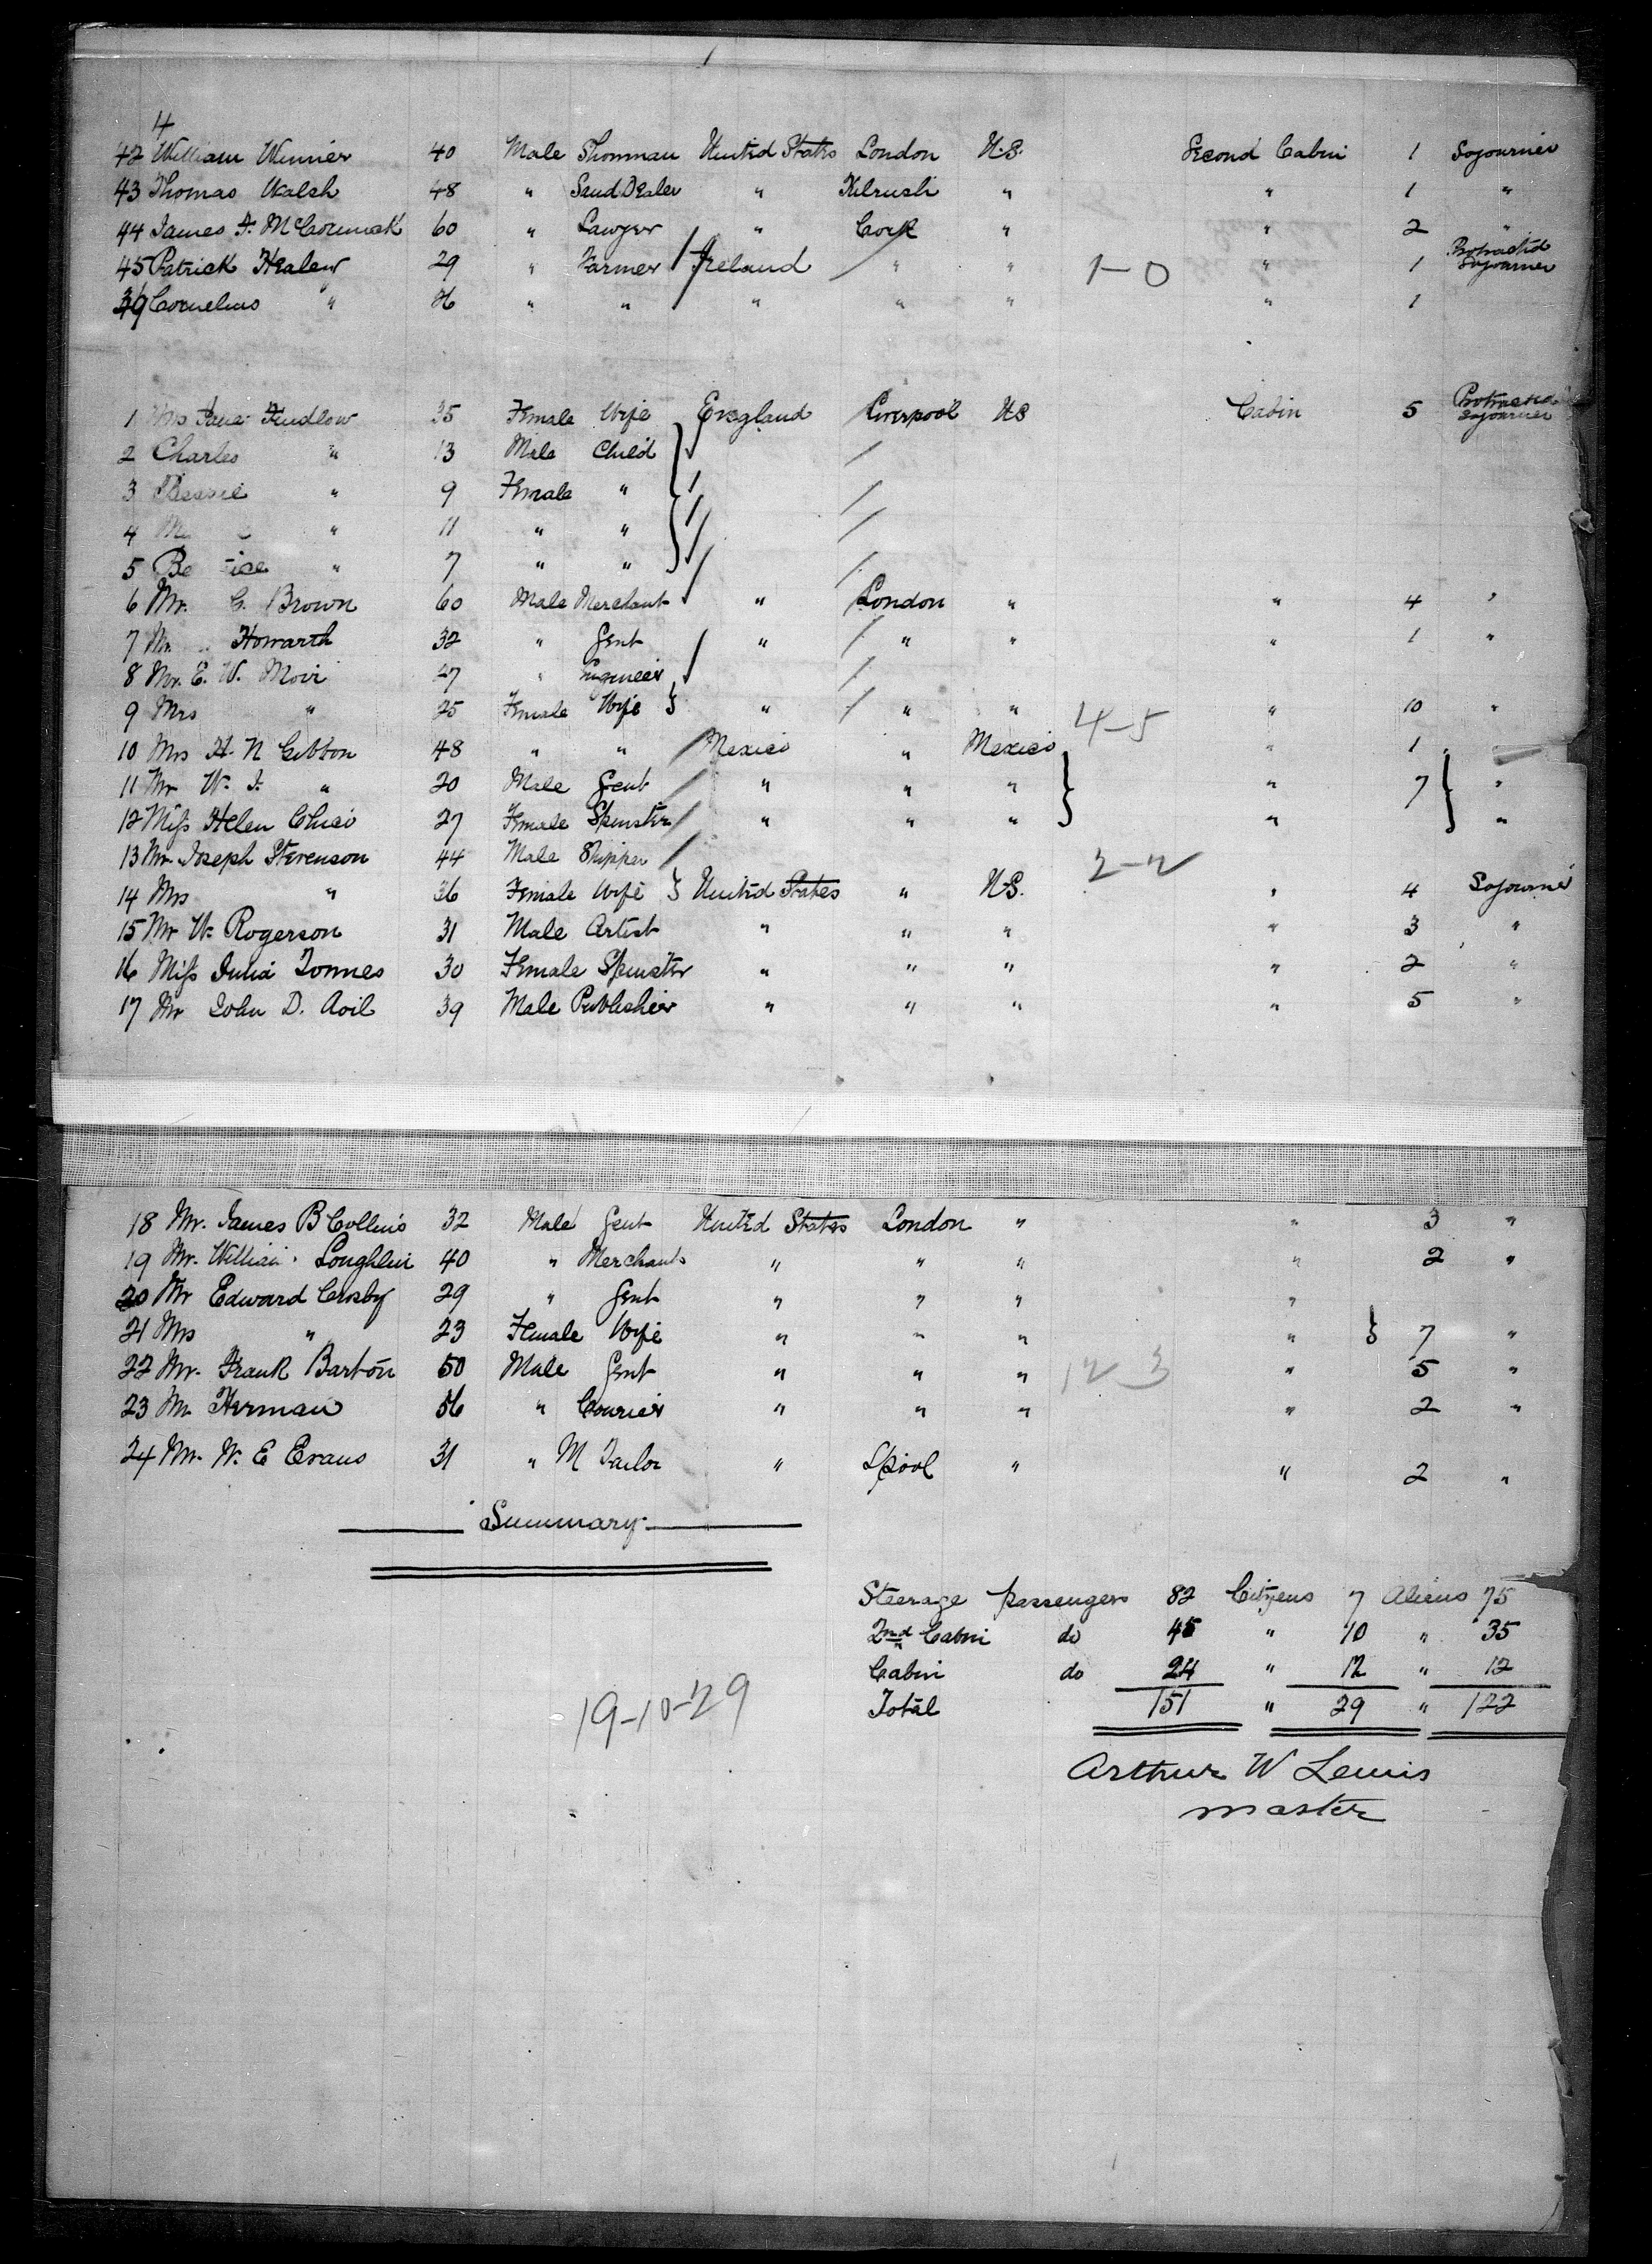 4
42 William Winner 40 Male Showman United States London U.S. Second Cabin 1 Sojourner
43 Thomas Walsh 48 " Dealer " Kilrush " " 1 "
44 James F. McCormack 60 " Lawyer " Cork " " 2 "
45 Patrick Healey 29 " Farmer Ireland " " 1-0 " 1 Protracted Sojourner
Cornelius " 26 " " " " " " 1
1 Mrs Jane 35 Female Wife England Liverpool US Cabin 5 Protracted Sojourner
2 Charles " 13 Male Child
3 " 9 Female "
4 " 11 " "
5 " 7 " "
6 Mr. G. Brown 60 Male Merchant " London " " 4 "
7 Mr. Howarth 32 " Gent " " " " 1 "
8 Mr. E. W. Moir 27 " Engineer
9 Mrs " 25 Female Wife } " " " 4-5 " 10 "
10 Mrs H. N Gibbon 48 " " Mexico " Mexico " 1
11 Mr W. F. " 20 Male Gent " " " " 7 "
12 Miss Helen Chico 27 Female Spinster " " " " "
13 Mr. Joseph Stevenson 44 Male Shipper
14 Mrs " 36 Female Wife } United States " U.S. 3-2 " 4 Sojourner
15 Mr W. Rogerson 31 Male Artist " " " " 3 "
16 Miss Julia Tonnes 30 Female Spinster " " " " 2 "
17 Mr John D. Avil 39 Male Publisher " " " " 5 "
18 Mr. James B Collins 32 Male Gent United States London " " 3 "
19 Mr. William Loughlin 40 " Merchant " " " " 2 "
20 Mr Edward Crosby 29 " Gent " " " "
21 Mrs " 23 Female Wife " " " " } 7 "
22 Mr. Frank Barton 50 Male Gent " " " 12 3 " 5 "
23 Mr Herman 56 " Courier " " " " 2 "
24 Mr. W. E Evans 31 " M Tailor " L'pool " " 2 "
Summary
Steerage passengers 82 Citizens 7 Aliens 75
2nd Cabin do 45 " 10 " 35
Cabin do 24 " 12 " 12
Total 151 " 29 " 122
19-10-29
Arthur W Lewis
master